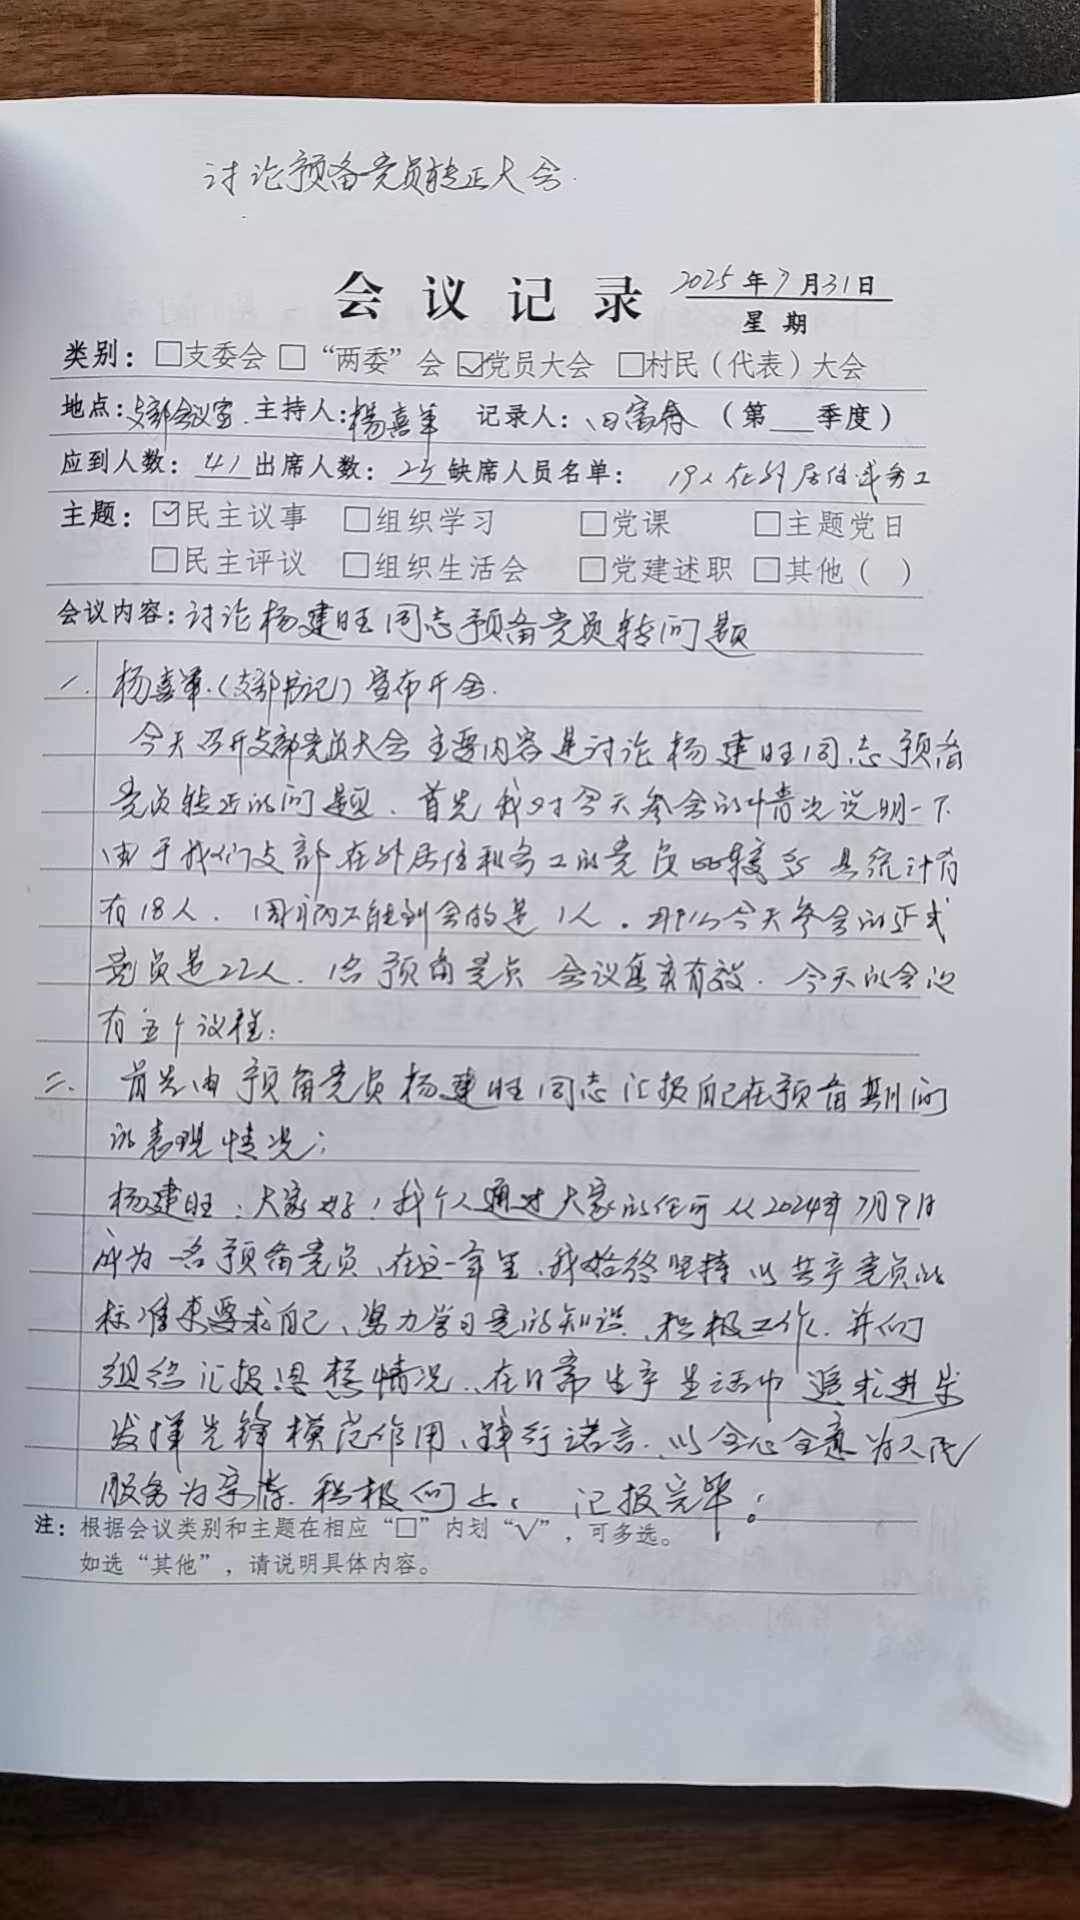 讨论预备党员转正大会.
会议记录 2025年7月31日
星期
类别：□支委会 □“两委”会 ☑党员大会 □村民（代表）大会
地点：支部会议室. 主持人：杨喜军 记录人：田富春 （第__季度）
应到人数：41 出席人数：23 缺席人员名单： 19人在外居住或务工
主题：☑民主议事 □组织学习 □党课 □主题党日
□民主评议 □组织生活会 □党建述职 □其他（ ）
会议内容：讨论杨建旺同志预备党员转问题
一. 杨喜军.（支部书记）宣布开会.
今天召开支部党员大会主要内容是讨论杨建旺同志预备
党员转正的问题. 首先我对今天参会的情况说明一下.
由于我们支部在外居住和务工的党员比较多 具统计有
有18人. 因病不能到会的是1人. 那么今天参会的正式
党员是22人. 1名预备党员 会议真实有效. 今天的会议
有五个议程：
二. 首先由预备党员杨建旺同志汇报自己在预备期间
的表现情况；
杨建旺：大家好！我个人通过大家的任可从2024年7月9日
成为一名预备党员、在这一年里、我始终坚持以共产党员的
标准来要求自己、努力学习党的知识、积极工作. 并向
组织汇报思想情况. 在日常生产生活中追求进步
发挥先锋模范作用、践行诺言. 以全心全意为人民
服务为宗旨. 积极向上； 记报完毕；
注：根据会议类别和主题在相应“□”内划“√”，可多选。
如选“其他”，请说明具体内容。